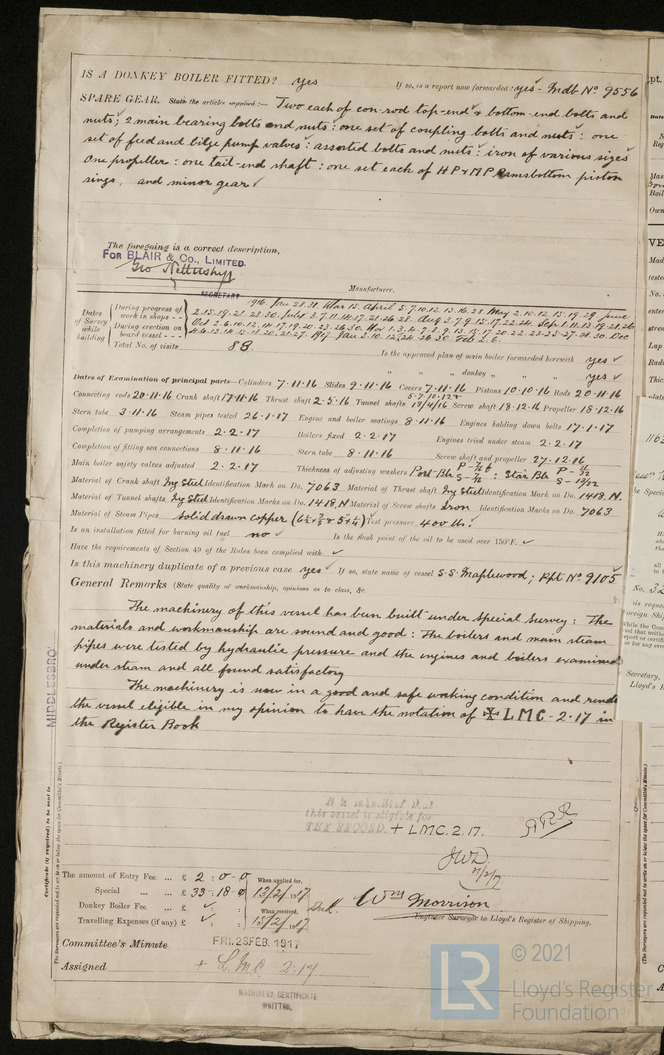 IS A DONKEY BOILER FITTED? yes If so, is a report now forwarded? yes - Mdb No 9556
SPARE GEAR. State the articles supplied:— Two each of con-rod top-end & bottom-end bolts and
nuts; 2 main bearing bolts and nuts: one set of coupling bolts and nuts: one
set of feed and bilge pump valves: assorted bolts and nuts: iron of various sizes
One propeller: one tail-end shaft: one set each of HP & MP Ramsbottom piston
rings, and minor gear
The foregoing is a correct description,
FOR BLAIR & CO., LIMITED.
Geo Nettleship
SECRETARY Manufacturer.
Dates of Survey while building
During progress of work in shops - -
During erection on board vessel - - -
Total No. of visits 88
Is the approved plan of main boiler forwarded herewith yes
" " " donkey " " " yes
Dates of Examination of principal parts—Cylinders 7.11.16 Slides 9.11.16 Covers 7.11.16 Pistons 10.10.16 Rods 20.11.16
Connecting rods 20.11.16 Crank shaft 17.11.16 Thrust shaft 2.5.16 Tunnel shafts 19/4/16 Screw shaft 18.12.16 Propeller 18.12.16
Stern tube 3.11.16 Steam pipes tested 26.1.17 Engine and boiler seatings 8.11.16 Engines holding down bolts 17.1.17
Completion of pumping arrangements 2.2.17 Boilers fixed 2.2.17 Engines tried under steam 2.2.17
Completion of fitting sea connections 8.11.16 Stern tube 8.11.16 Screw shaft and propeller 27.12.16
Main boiler safety valves adjusted 2.2.17 Thickness of adjusting washers Port Blr : Star Blr
Material of Crank shaft Ing Steel Identification Mark on Do. 7063 Material of Thrust shaft Ing Steel Identification Mark on Do. 1418.N.
Material of Tunnel shafts Ing Steel Identification Marks on Do. 1418.N Material of Screw shafts Iron Identification Marks on Do. 7063
Material of Steam Pipes solid drawn copper Test pressure 400 lbs.
Is an installation fitted for burning oil fuel no Is the flash point of the oil to be used over 150°F.
Have the requirements of Section 49 of the Rules been complied with
Is this machinery duplicate of a previous case yes If so, state name of vessel S.S. Maplewood; Rpt No 9105
General Remarks (State quality of workmanship, opinions as to class, &c.
The machinery of this vessel has been built under special survey: The
materials and workmanship are sound and good: The boilers and main steam
pipes were tested by hydraulic pressure and the engines and boilers examined
under steam and all found satisfactory
The machinery is now in a good and safe working condition and
the vessel eligible in my opinion to have the notation of LMC - 2.17 in
the Register Book
MIDDLESBRO'
It is submitted that
this vessel is eligible for
THE RECORD. + LMC. 2.17.
JWD
Certificate (if required) to be sent to
(The Surveyors are requested not to write on or below the space for Committee's Minute.)
The amount of Entry Fee ... £ 2 : 0 - 0 When applied for,
Special ... ... £ 33 - 18 - 0 13/2/1917
Donkey Boiler Fee ... £ When received,
Travelling Expenses (if any) £ 15/2/1917
Wm Morrison
Engineer Surveyor to Lloyd's Register of Shipping.
Committee's Minute FRI. 23 FEB. 1917
Assigned + LMC 2.17
MACHINERY CERTIFICATE
WRITTEN.
LR
© 2021
Lloyd's Register
Foundation